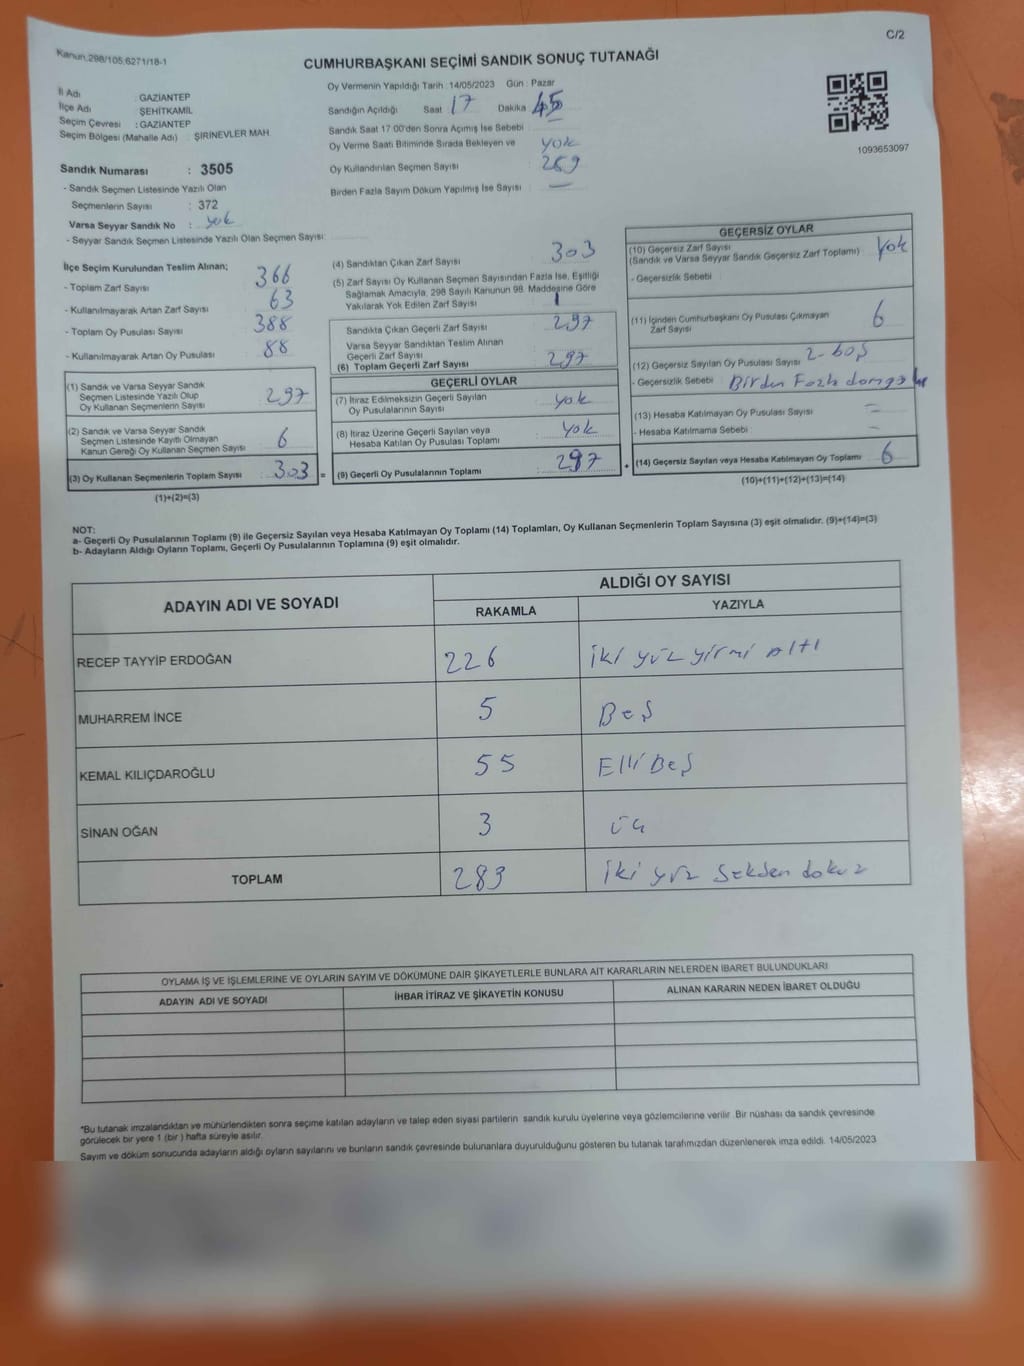 Kanun:298/105,6271/18-1
C/2
CUMHURBAŞKANI SEÇİMİ SANDIK SONUÇ TUTANAĞI
İl Adı : GAZİANTEP
İlçe Adı : ŞEHİTKAMİL
Seçim Çevresi : GAZİANTEP
Seçim Bölgesi (Mahalle Adı) : ŞİRİNEVLER MAH.
Oy Vermenin Yapıldığı Tarih : 14/05/2023 Gün : Pazar
Sandığın Açıldığı Saat 17 Dakika 45
Sandık Saat 17:00'den Sonra Açımış İse Sebebi
Oy Verme Saati Bitiminde Sırada Bekleyen ve yok
Oy Kullandırılan Seçmen Sayısı : 289
Birden Fazla Sayım Döküm Yapılmış İse Sayısı : —
1093653097
Sandık Numarası : 3505
- Sandık Seçmen Listesinde Yazılı Olan
Seçmenlerin Sayısı : 372
Varsa Seyyar Sandık No : yok
- Seyyar Sandık Seçmen Listesinde Yazılı Olan Seçmen Sayısı:
İlçe Seçim Kurulundan Teslim Alınan;
- Toplam Zarf Sayısı : 366
- Kullanılmayarak Artan Zarf Sayısı : 63
- Toplam Oy Pusulası Sayısı : 388
- Kullanılmayarak Artan Oy Pusulası : 88
(1) Sandık ve Varsa Seyyar Sandık
Seçmen Listesinde Yazılı Olup
Oy Kullanan Seçmenlerin Sayısı : 297
(2) Sandık ve Varsa Seyyar Sandık
Seçmen Listesinde Kayıtlı Olmayan
Kanun Gereği Oy Kullanan Seçmen Sayısı : 6
(3) Oy Kullanan Seçmenlerin Toplam Sayısı : 303 =
(1)+(2)=(3)
(4) Sandıktan Çıkan Zarf Sayısı : 303
(5) Zarf Sayısı Oy Kullanan Seçmen Sayısından Fazla İse, Eşitliği
Sağlamak Amacıyla, 298 Sayılı Kanunun 98. Maddesine Göre
Yakılarak Yok Edilen Zarf Sayısı :
Sandıkta Çıkan Geçerli Zarf Sayısı : 297
Varsa Seyyar Sandıktan Teslim Alınan
Geçerli Zarf Sayısı :
(6) Toplam Geçerli Zarf Sayısı : 297
GEÇERLİ OYLAR
(7) İtiraz Edilmeksizin Geçerli Sayılan
Oy Pusulalarının Sayısı : yok
(8) İtiraz Üzerine Geçerli Sayılan veya
Hesaba Katılan Oy Pusulası Toplamı : Yok
(9) Geçerli Oy Pusulalarının Toplamı : 297 +
GEÇERSİZ OYLAR
(10) Geçersiz Zarf Sayısı
(Sandık ve Varsa Seyyar Sandık Geçersiz Zarf Toplamı) : Yok
- Geçersizlik Sebebi :
(11) İçinden Cumhurbaşkanı Oy Pusulası Çıkmayan
Zarf Sayısı : 6
(12) Geçersiz Sayılan Oy Pusulası Sayısı : 2 - boş
- Geçersizlik Sebebi : Birden Fazla damga
(13) Hesaba Katılmayan Oy Pusulası Sayısı : —
- Hesaba Katılmama Sebebi : —
(14) Geçersiz Sayılan veya Hesaba Katılmayan Oy Toplamı : 6
(10)+(11)+(12)+(13)=(14)
NOT:
a- Geçerli Oy Pusulalarının Toplamı (9) ile Geçersiz Sayılan veya Hesaba Katılmayan Oy Toplamı (14) Toplamları, Oy Kullanan Seçmenlerin Toplam Sayısına (3) eşit olmalıdır. (9)+(14)=(3)
b- Adayların Aldığı Oyların Toplamı, Geçerli Oy Pusulalarının Toplamına (9) eşit olmalıdır.
ADAYIN ADI VE SOYADI
ALDIĞI OY SAYISI
RAKAMLA YAZIYLA
RECEP TAYYİP ERDOĞAN 226 iki yüz yirmi altı
MUHARREM İNCE 5 Beş
KEMAL KILIÇDAROĞLU 55 Elli Beş
SİNAN OĞAN 3 üç
TOPLAM 289 iki yüz seksen dokuz
OYLAMA İŞ VE İŞLEMLERİNE VE OYLARIN SAYIM VE DÖKÜMÜNE DAİR ŞİKAYETLERLE BUNLARA AİT KARARLARIN NELERDEN İBARET BULUNDUKLARI
ADAYIN ADI VE SOYADI İHBAR İTİRAZ VE ŞİKAYETİN KONUSU ALINAN KARARIN NEDEN İBARET OLDUĞU
*Bu tutanak imzalandıktan ve mühürlendikten sonra seçime katılan adayların ve talep eden siyasi partilerin sandık kurulu üyelerine veya gözlemcilerine verilir. Bir nüshası da sandık çevresinde
görülecek bir yere 1 (bir) hafta süreyle asılır.
Sayım ve döküm sonucunda adayların aldığı oyların sayılarını ve bunların sandık çevresinde bulunanlara duyurulduğunu gösteren bu tutanak tarafımızdan düzenlenerek imza edildi. 14/05/2023